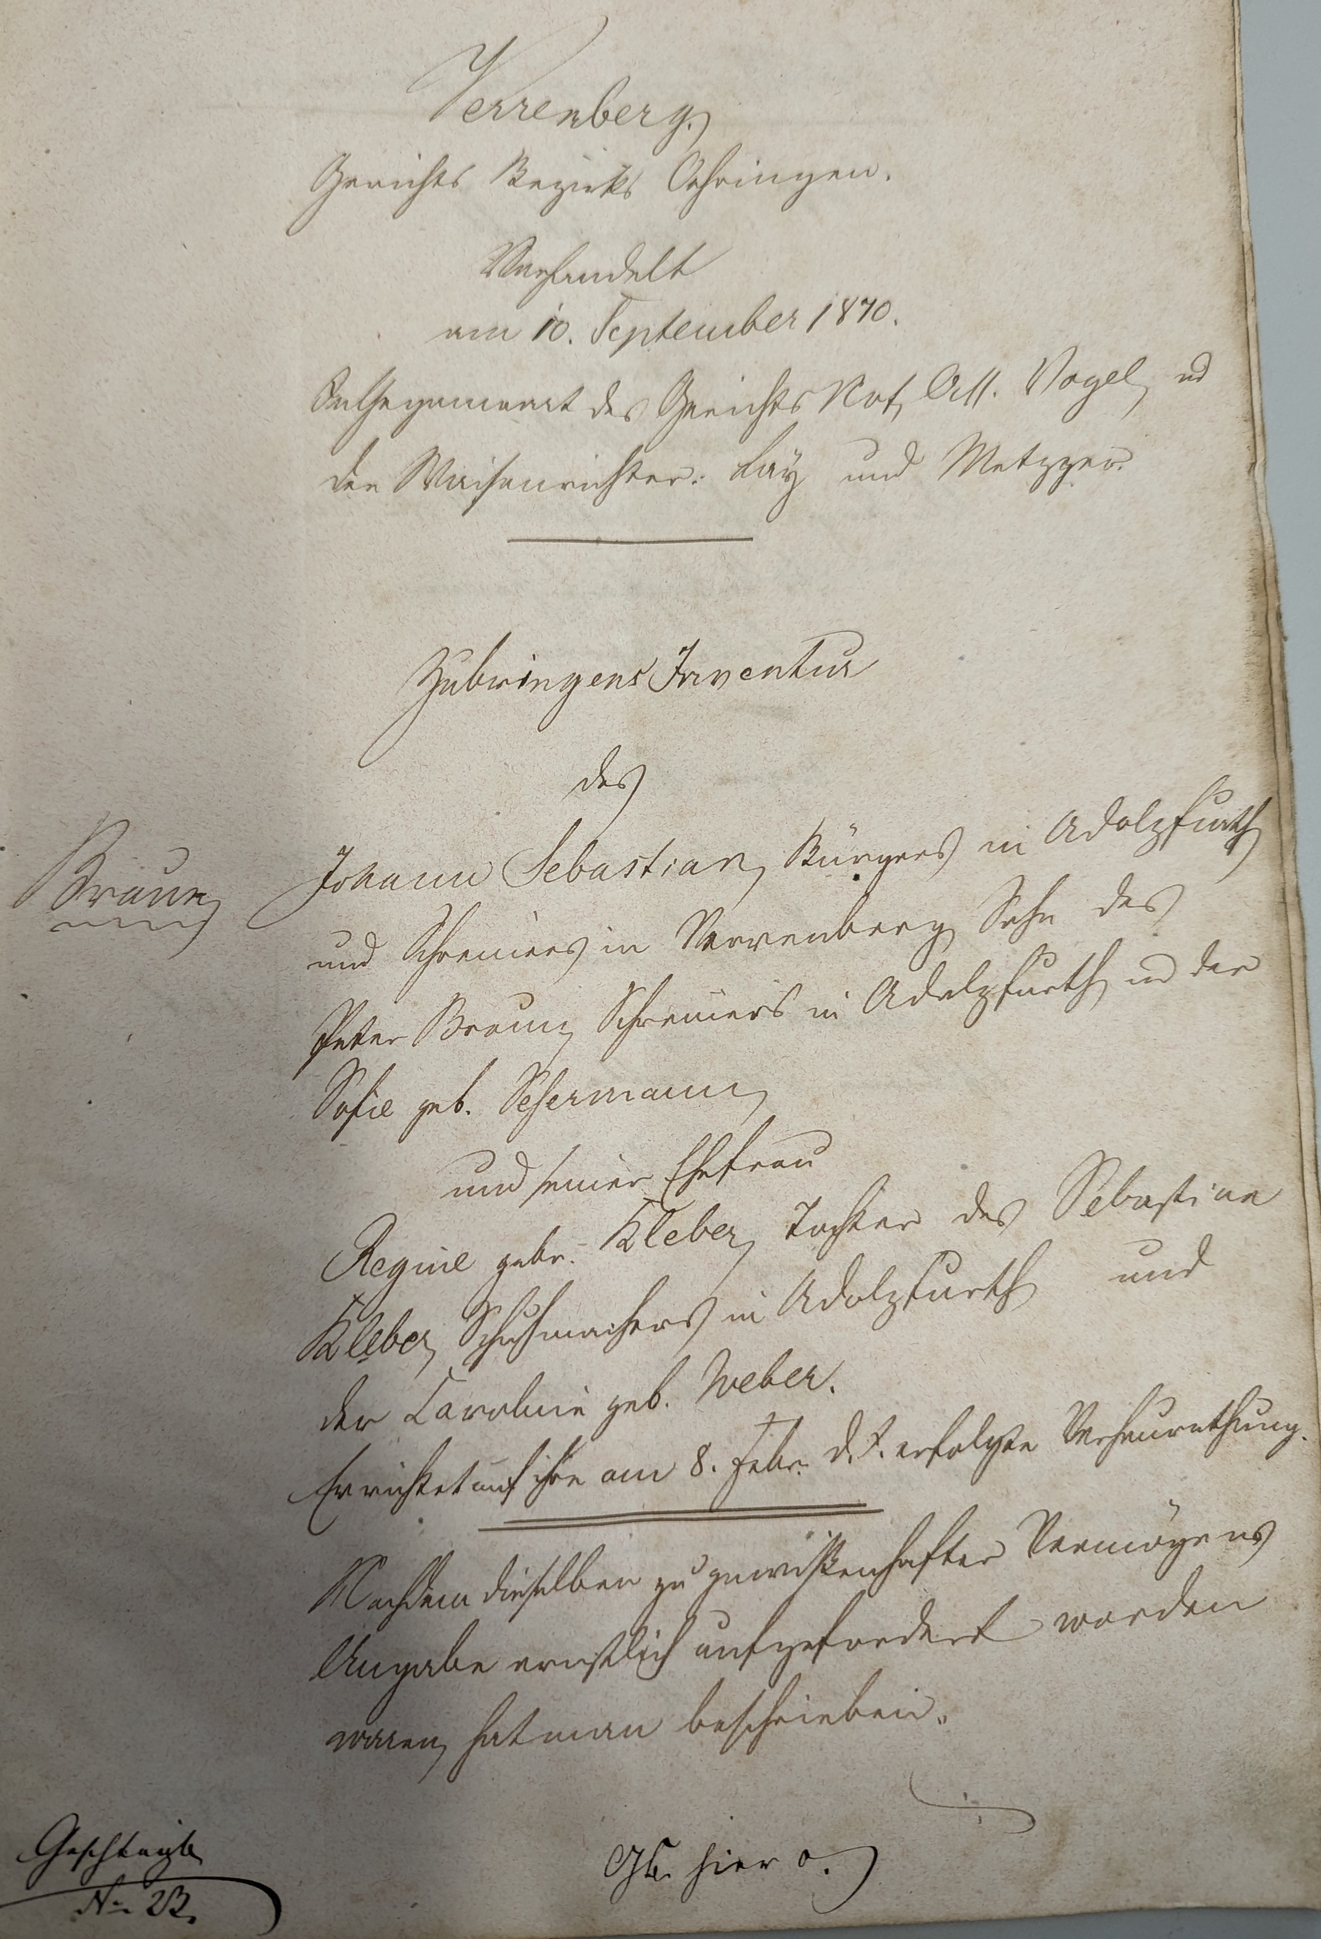 Verrenberg.
Gerichts Bezirks Oehringen.
Verhandelt
am 10. September 1870.
In Gegenwart des Gerichts Not. Ass. Vogel, ud
der Waisenrichter: Lay und Metzger.
Zubringens Inventur
des
Braun
Johann Sebastian, Bürgers in Adolzfurth
und Schreiners in Verrenberg, Sohn des
Peter Braun, Schreiners in Adolzfurth, ud der
Sofie geb. Sehermann,
und seiner Ehefrau
Regine gebr. Kleber, Tochter des Sebastian
Kleber, Schuhmachers in Adolzfurth und
der Caroline geb. Weber.
Errichtet auf ihre am 8. Febr. d. J. erfolgte Verheurathung.
Nachdem dieselben zu gewissenhafter Vermögens
Angabe ernstlich aufgefordert worden
waren, hat man beschrieben.
hier o.
N= 23.